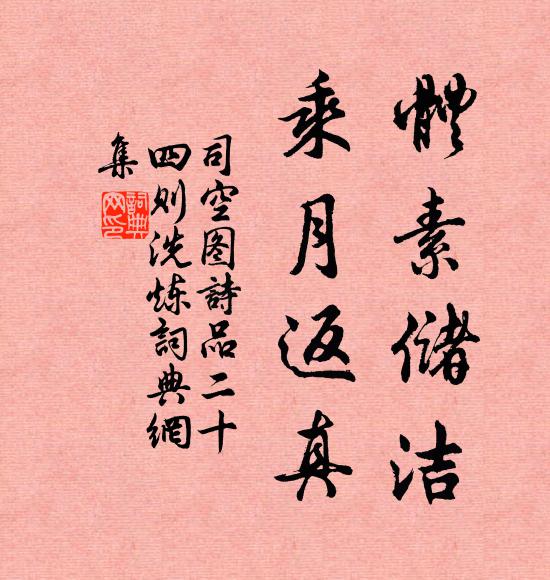 體素儲洁
乘月返真
司空图詩品二十
四则洗炼詞典網
集
詞典网印